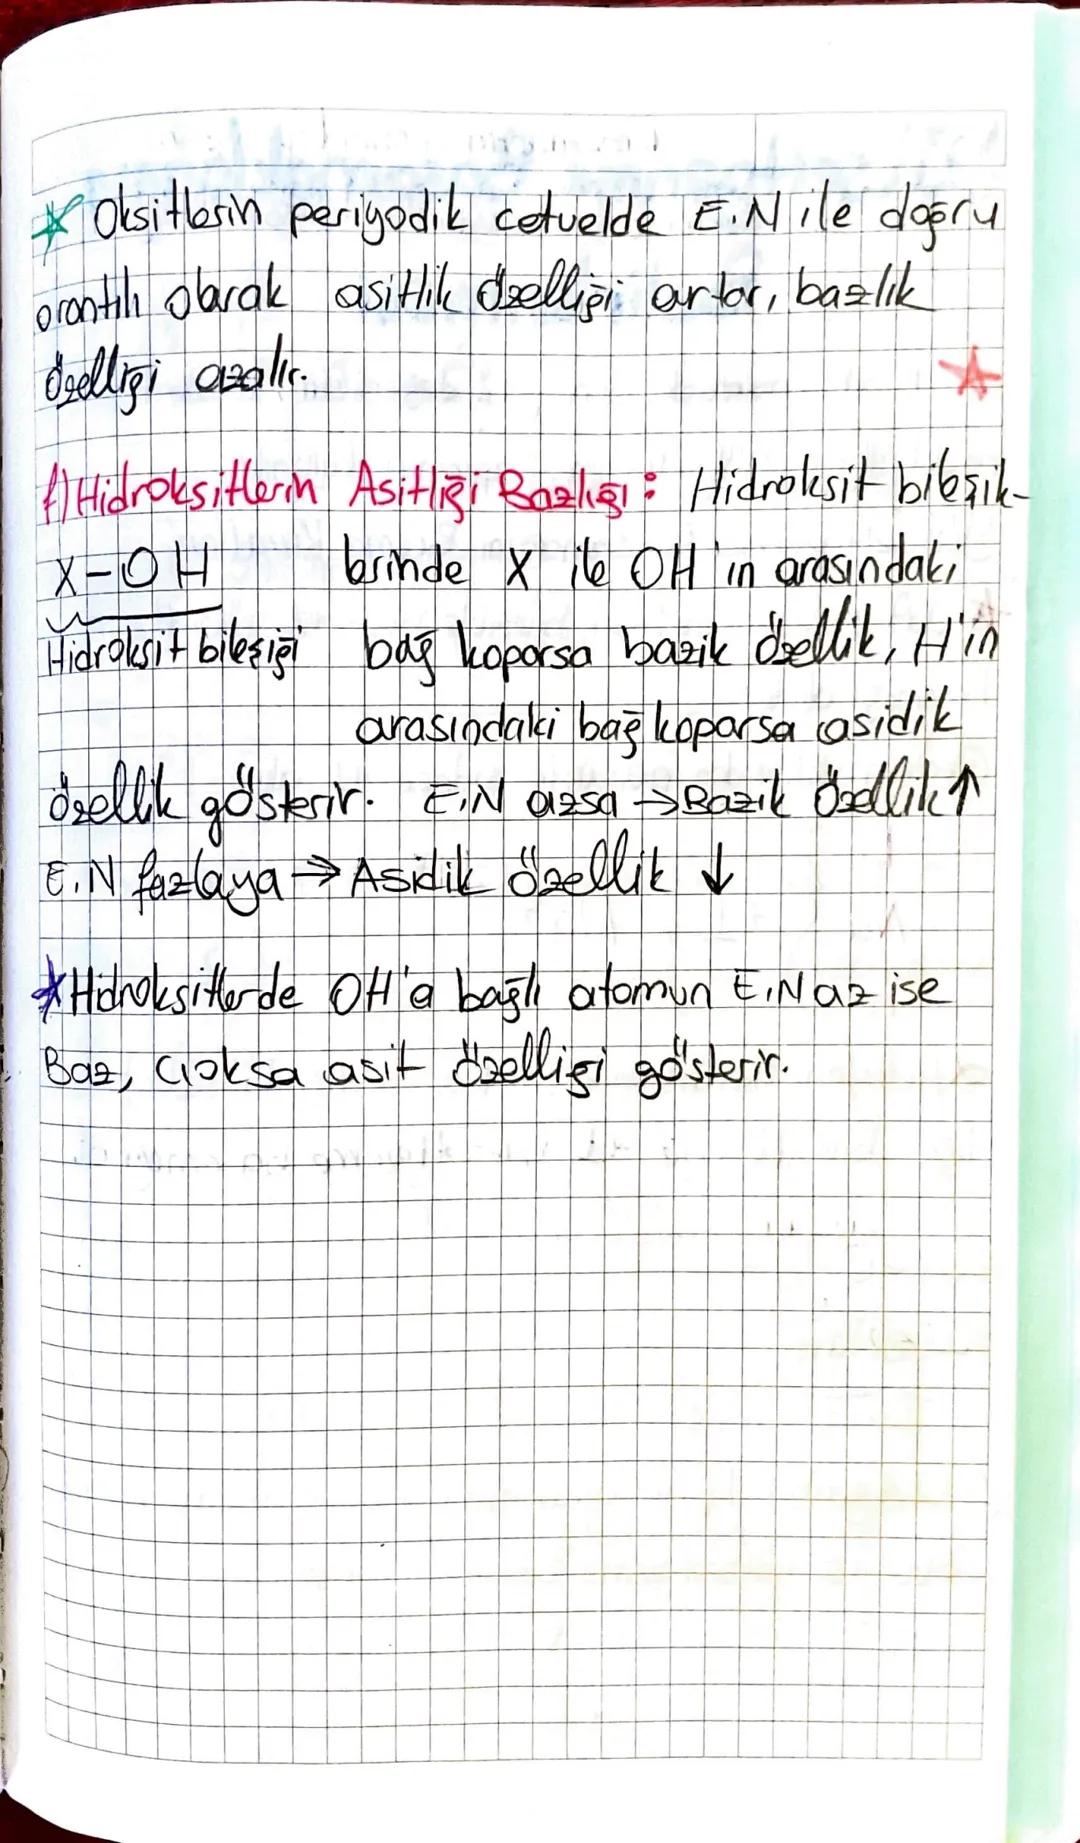 Oksitlerin periyodik cetvelde E.N ile doğru
orantılı olarak asitlik özelliği artar, bazlık
özelliği azalır.
f) Hidroksitlerin Asitliği Bazlığı: Hidroksit bileşik-
X-OH lerinde X ile OH'ın arasındaki
Hidroksit bileşiği bağ koparsa bazik özellik, H'in
arasındaki bağ koparsa asidik
özellik gösterir. E.N azsa → Bazik Özellik ↑
E.N fazlaya → Asidik özellik ↓
Hidroksitlerde OH'a bağlı atomun E.N az ise
Baz, çoksa asit özelliği gösterir.